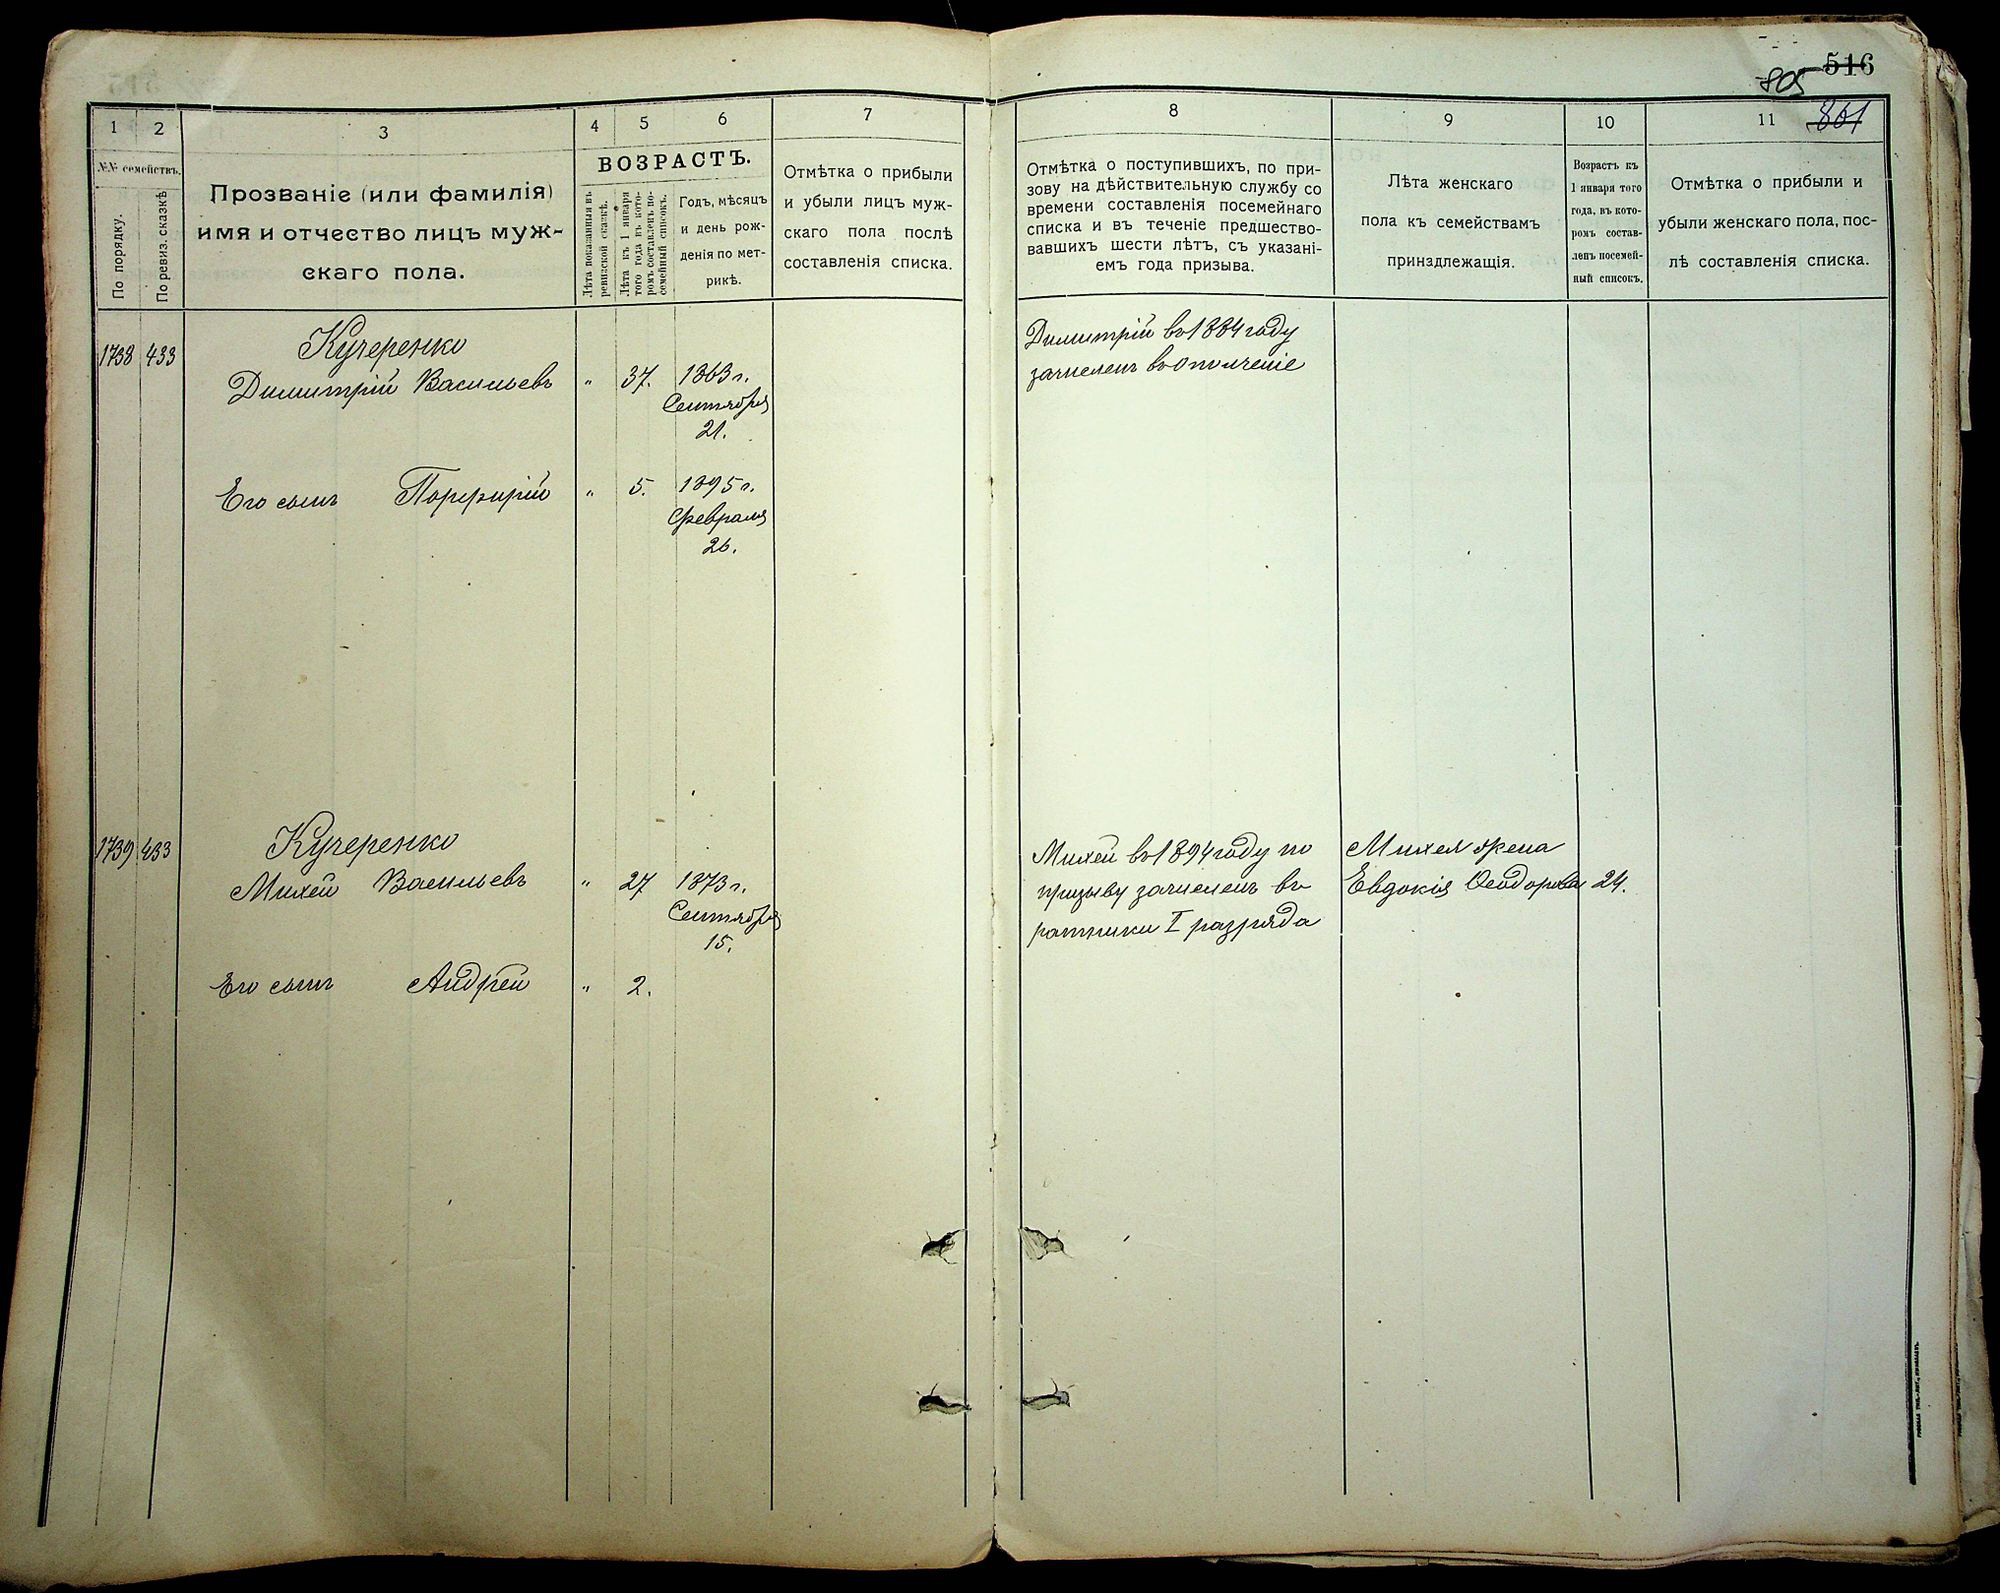 516
805
861
1
2
3
4
5
6
7
8
9
10
11
№№ семействъ.
По порядку.
По ревиз. сказкѣ
Прозваніе (или фамилія)
имя и отчество лицъ муж-
скаго пола.
ВОЗРАСТЪ.
Лѣта показанныя въ
ревизской сказкѣ.
Лѣта къ 1 января
того года въ кото-
ромъ составленъ по-
семейный списокъ.
Годъ, мѣсяцъ
и день рож-
денія по мет-
рикѣ.
Отмѣтка о прибыли
и убыли лицъ муж-
скаго пола послѣ
составленія списка.
Отмѣтка о поступившихъ, по при-
зову на дѣйствительную службу со
времени составленія посемейнаго
списка и въ теченіе предшество-
вавшихъ шести лѣтъ, съ указані-
емъ года призыва.
Лѣта женскаго
пола къ семействамъ
принздлежащія.
Возрастъ къ
1 января того
года, въ кото-
ромъ состав-
ленъ посемей-
ный списокъ.
Отмѣтка о прибыли и
убыли женскаго пола, пос-
лѣ составленія списка.
1738 433 Кучеренко
Димитрій Васильевъ " 37. 1863 г.
Сентября
21.
Димитрій въ 1884 году
зачисленъ въ ополченіе
Его сынъ Порфирій " 5. 1895 г.
Февраля
26.
1739 433 Кучеренко
Михей Васильевъ " 27 1873 г.
Сентября
15.
Михей въ 1894 году по
призыву зачисленъ въ
ратники I разряда
Михея жена
Евдокія Феодорова 24.
Его сынъ Андрей " 2.